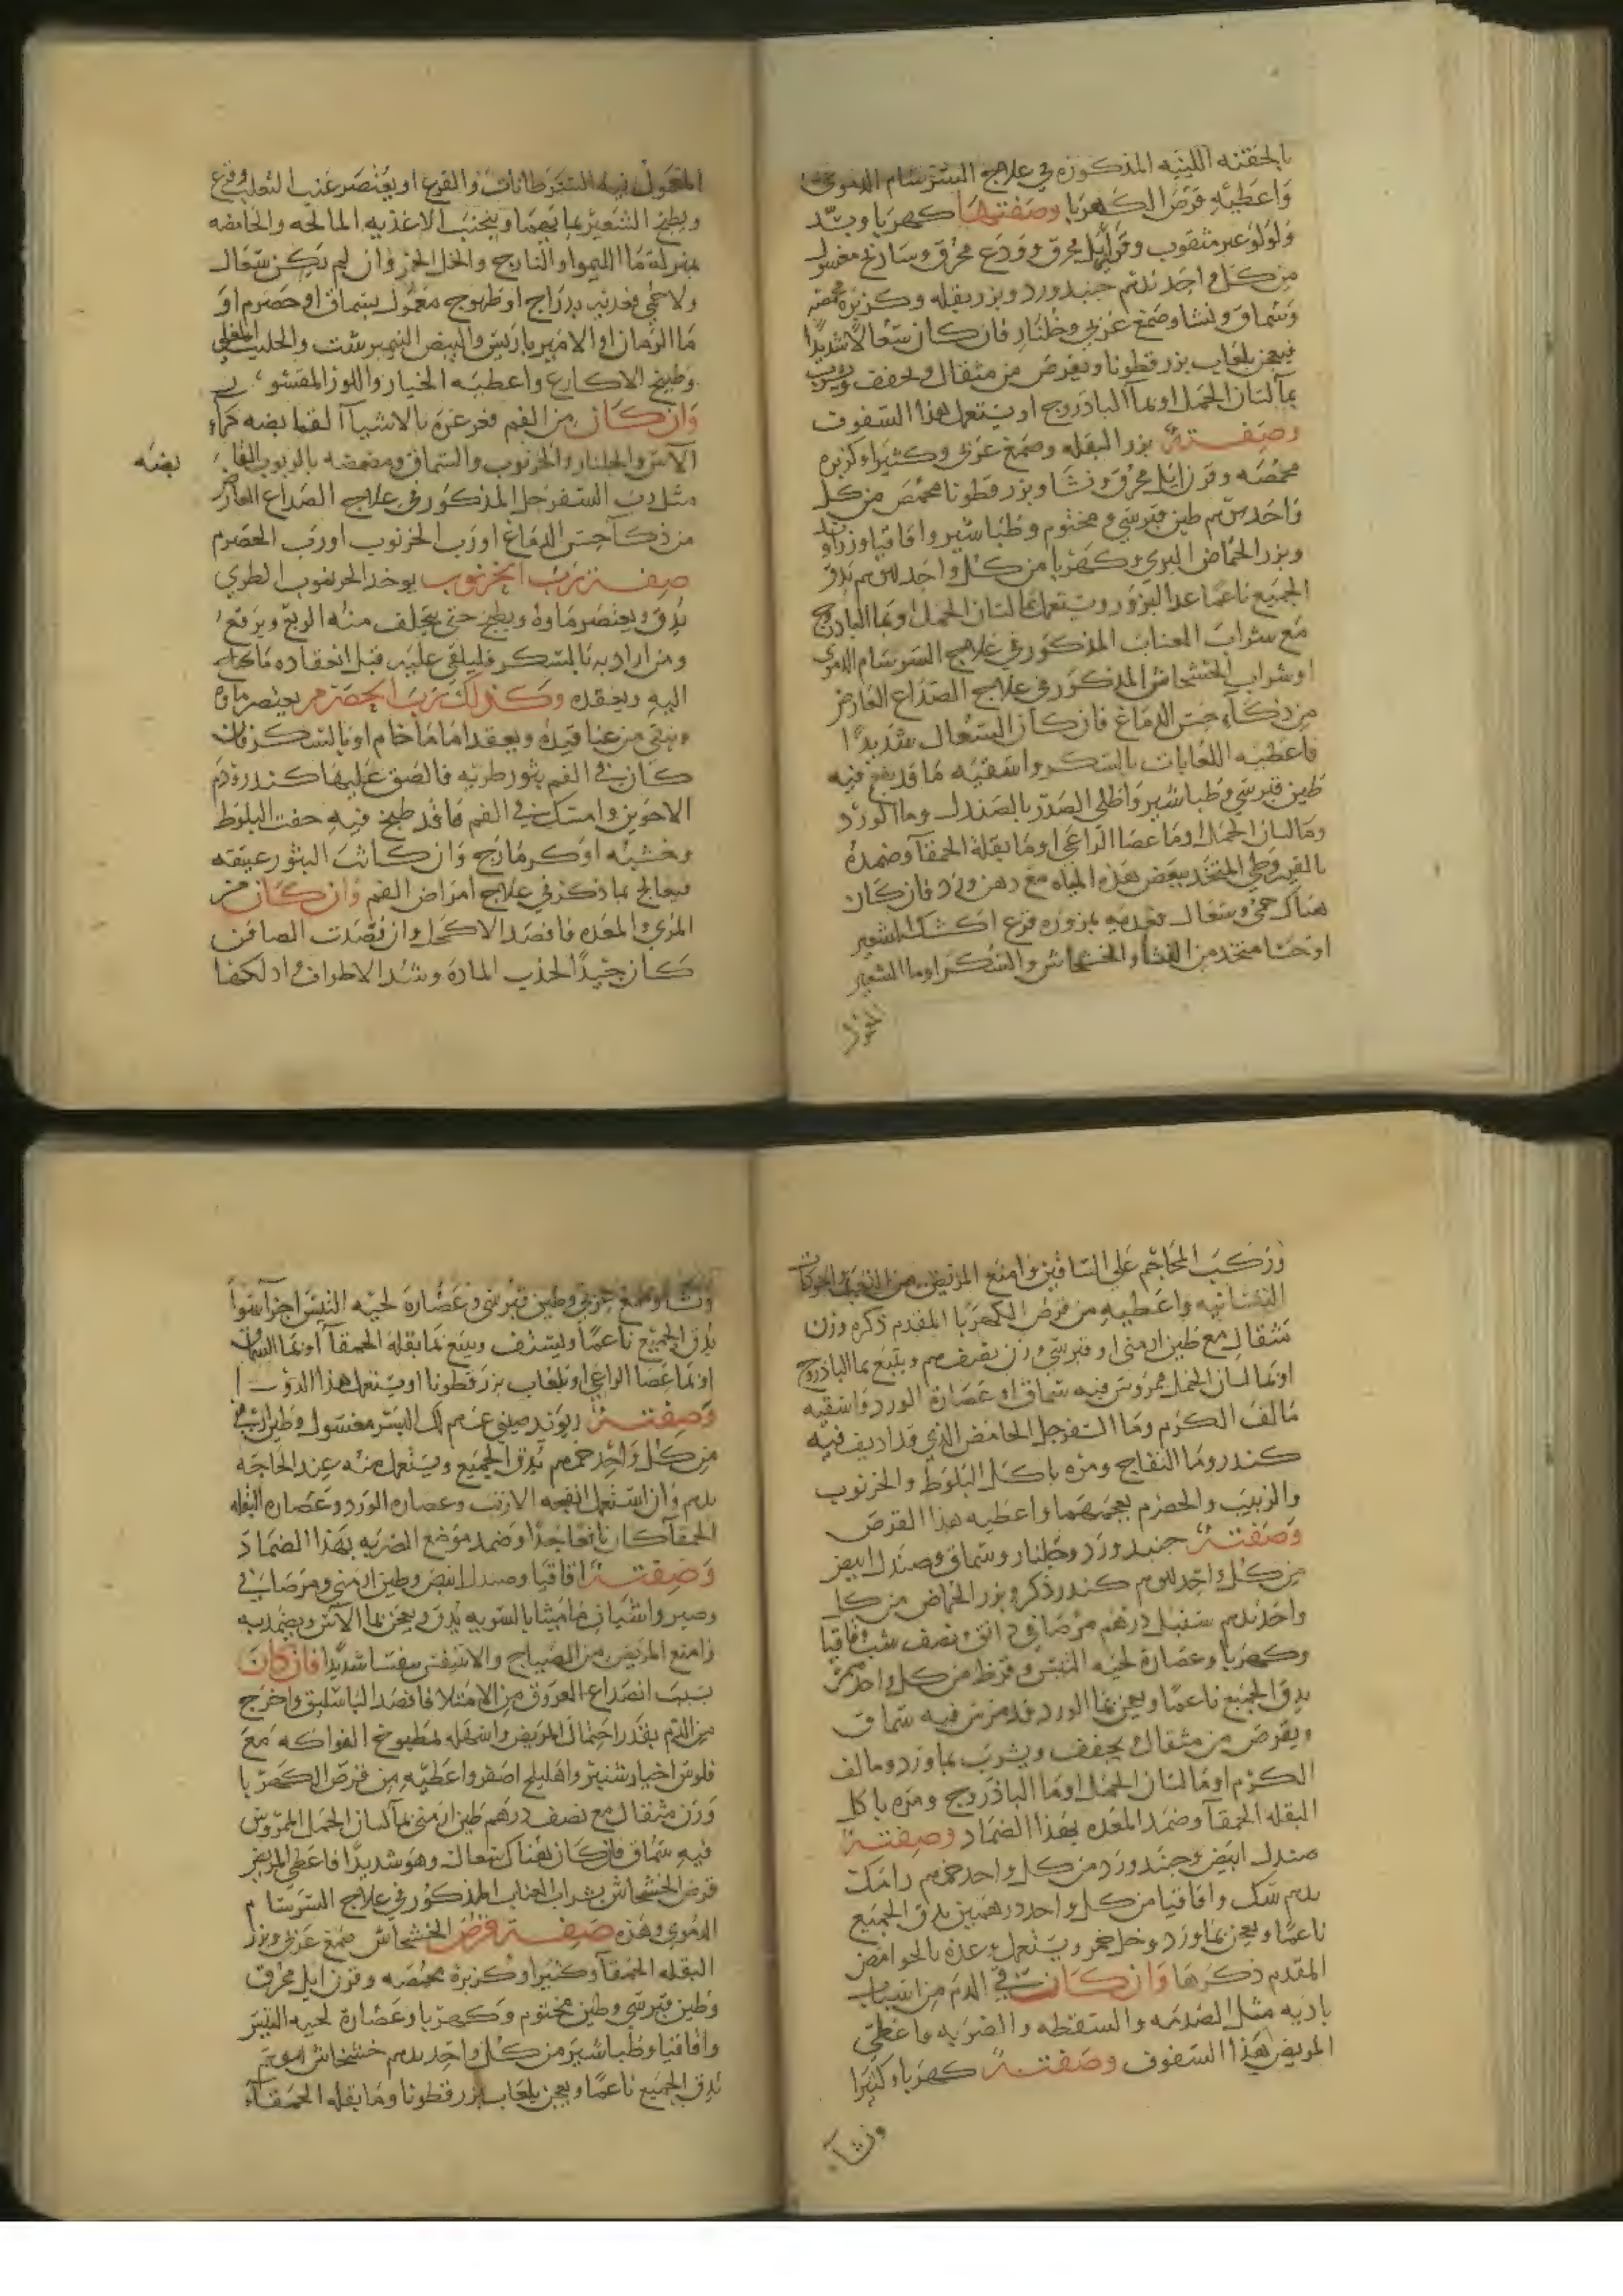 بالحقنه اللينه المذكوره في علاج السرسام الدموي
واعطيه قرص الكهربا وصفتها كهربا وبسد
ولولو غير مثقوب وقرن ايل محرق وودع محرق وسادنج مغسول
من كل واحد جنبد ورد وبزر بقله وكزبره محمصه
وسماق ونشا وصمغ عربي وجلنار فان كان سعالا شديدًا
فيعجن بلعاب بزر قطونا ويقرص من مثقال ويجفف ويشرب
بمآ لسان الحمل او بمآ الباذروج او يستعمل هذا السفوف
وصفته بزر البقله وصمغ عربي وكثيرا وكزبره
محمصه وقرن ايل محرق ونشا وبزر قطونا محمص من كل
واحد طين قبرسي ومختوم وطباشير واقاقيا
وبزر الحماض البري وكهربا من كل واحد يدق
الجميع ناعما عدا البزور ويستعمل بما لسان الحمل او بما الباذروج
مع شراب العناب المذكور في علاج السرسام الدموي
او شراب الخشخاش المذكور في علاج الصداع العارض
من ذكآء حس الدماغ فان كان السعال شديدًا
فاعطيه اللعابات بالسكر واسقيه ما قد نقع فيه
طين قبرسي وطباشير واطلي الصدر بالصندل وما الورد
وما لسان الحمل او ما عصا الراعي او ما بقلة الحمقآ وضمده
بالقيروطي المتخذ ببعض هذه المياه مع دهن ورد فان كان
هناك حمى وسعال فغديه بمزوره قرع او كشك الشعير
او حسا متخذ من النشا والخشخاش والسكر او ما الشعير
المعمول
المعمول فيه السرطانات والقرع او يعتصر عنب الثعلب وقرع
ويطبخ الشعير بمايهما ويجنب الاغذيه المالحه والحامضه
بمنزلة ما الليموا والنارنج والخل الخمر وان لم يكن سعال
ولا حمى فغديه بدراج او طيهوج معمول بسماق او حصرم او
ما الرمان او الامير باريس والبيض النيمبرشت والحليب المغلي
وطبيخ الاكارع واعطيه الخيار واللوز المقشو ر
وان كان من الفم فغرغره بالاشيآ القابضه كمآء
الآس والجلنار والخرنوب والسماق ومضمضه بالربوب القا
بضه
مثل رب السفرجل المذكور في علاج الصداع العارض
من ذكآ حس الدماغ او رب الخرنوب او رب الحصرم
صفة رب الخرنوب يوخذ الخرنوب الطري
يدق ويعتصر ماوه ويطبخ حتى يتخلف منه الربع ويرفع
ومن اراد به بالسكر فليلقي عليه قبل انعقاده ما يحلى
اليه ويعقده وكذلك رب الحصرم يعتصر ماوه
وينقي من عناقيده ويعقد اما ما خام او بالسكر فان
كان في الفم بثور طريه فالصق عليها كندر ودم
الاخوين وامسك في الفم ما قد طبخ فيه جفت البلوط
وخشبه او كرمازج وان كانت البثور عتيقه
فيعالج بما ذكر في علاج امراض الفم وان كان من
المري والمعده فافصد الاكحل وان فصدت الصافن
كان جيدًا لجذب الماده وشد الاطراف وادلكها
وركب المحاجم على الساقين وامنع المريض من التعب والحركات
النفسانيه واعطيه من قرص الكهربا المقدم ذكره وزن
مثقال مع طين ارمني او قبرسي وزن نصف درهم ويتبع بما الباذروج
او بما لسان الحمل ممروس فيه سماق او عصارة الورد واسقيه
ما لف الكرم وما السفرجل الحامض الذي قد اديف فيه
كندر وما التفاح ومره باكل البلوط والخرنوب
والزبيب والحصرم بعجمهما واعطيه هذا القرص
وصفته جنبد ورد وجلنار وسماق وصندل ابيض
من كل واحد كندر ذكر وبزر الحماض من كل
واحد سنبل درهم مرصافي دانق ونصف شب واقاقيا
وكهربا وعصارة لحية التيس وقرظ من كل واحد
يدق الجميع ناعما ويعجن بما الورد قد مرس فيه سماق
ويقرص من مثقال يجفف ويشرب بماورد وما لف
الكرم او ما لسان الحمل او ما الباذروج ومره باكل
البقله الحمقآ وضمد المعده بهذا الضماد وصفته
صندل ابيض وجنبد ورد من كل واحد رامك
سك واقاقيا من كل واحد درهمين يدق الجميع
ناعما ويعجن بماورد وخل خمر ويستعمل وغذه بالحوامض
المقدم ذكرها وان كان نفث الدم من اسباب
باديه مثل الصدمه والسقطه والضربه فاعطي
المريض هذا السفوف وصفته كهربا وكثيرا
ونشآ
ونشا وصمغ عربي وطين قبرسي وعصارة لحيه التيس اجزآ سوآ
يدق الجميع ناعما وليستف ويتبع بما بقله الحمقآ او بما السماق
او بما عصا الراعي او بلعاب بزر قطونا او يستعمل هذا الدوآ
وصفته ريوند صيني لك البسر مغسول وطين ارمني
من كل واحد يدق الجميع ويستعمل منه عند الحاجه
وان استعمل انفحه الارنب وعصاره الورد وعصاره البقله
الحمقآ كان نافعا جدًا وضمد موضع الضربه بهذا الضماد
وصفته اقاقيا وصندل ابيض وطين ارمني ومرصافي
وصبر واشياف ماميثا بالسويه يدق ويعجن بما الآس ويضمد به
وامنع المريض من الصياح والاتنفس نفسا شديدًا فان كان
بسبب انصداع العروق من الامتلا فافصد الباسليق واخرج
من الدم بقدر احتمال المريض واسهله بمطبوخ الفواكه مع
فلوس اخيارشنبر واهليلج اصفر واعطيه من قرص الكهربا
وزن مثقال مع نصف درهم طين ارمني بمآ لسان الحمل الممروس
فيه سماق فان كان هناك سعال وهو شديدًا فاعطي المريض
قرص الخشخاش بشراب العناب المذكور في علاج السرسام
الدموي وهذه صفة قرص الخشخاش صمغ عربي وبزر
البقله الحمقآ وكثيرا وكزبرة محمصه وقرن ايل محرق
وطين قبرسي وطين مختوم وكهربا وعصارة لحيه التيس
واقاقيا وطباشير من كل واحد خشخاش
يدق الجميع ناعما ويعجن بلعاب بزر قطونا وما بقله الحمقآء